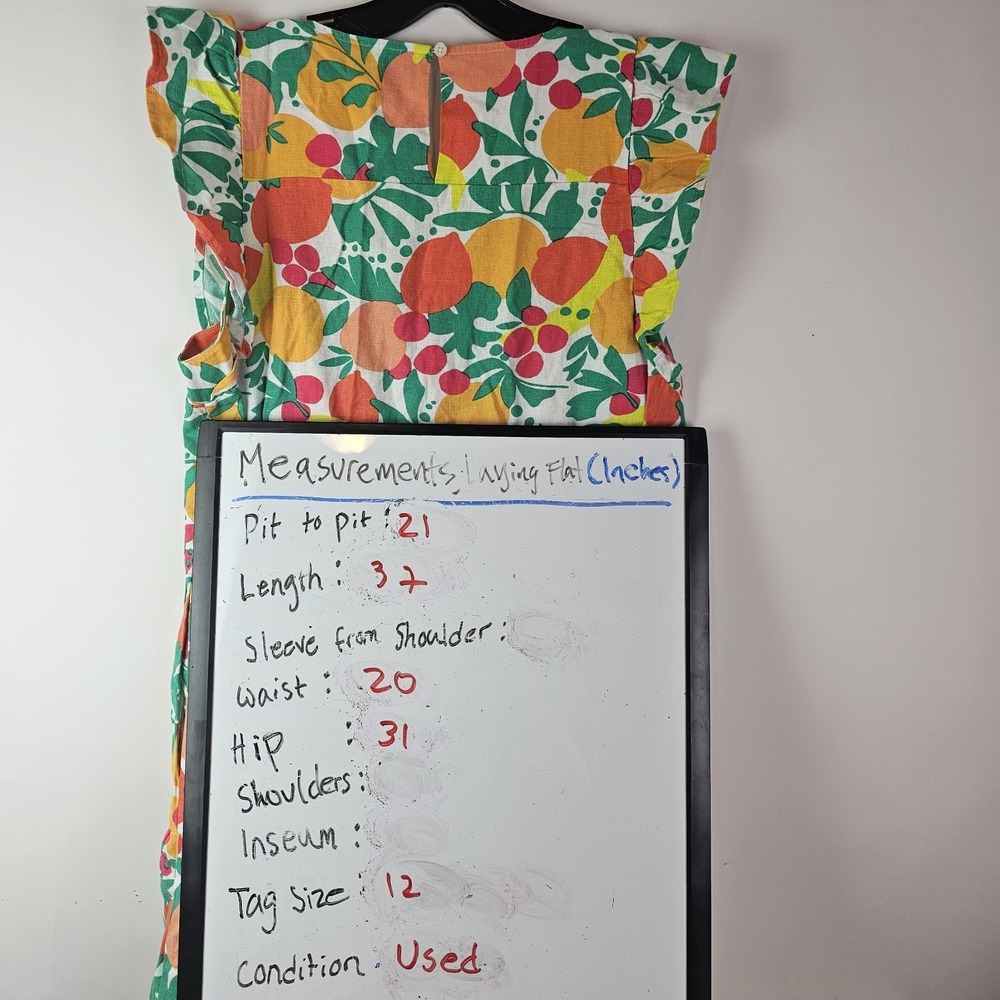 Measurements, Laying Flat (Inches)
Pit to pit : 21
Length : 37
Sleeve from Shoulder :
Waist : 20
Hip : 31
Shoulders :
Inseum :
Tag Size : 12
Condition . Used